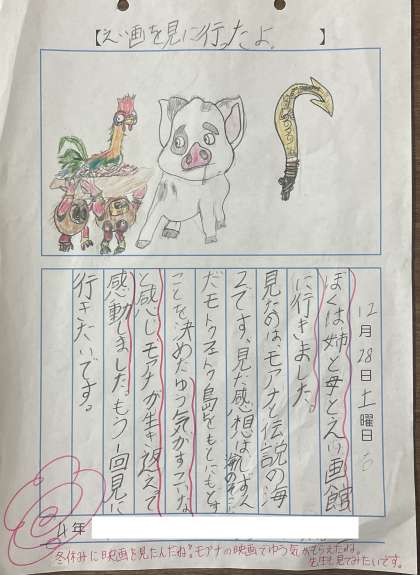 【えい画を見に行ったよ。】
12月28日土曜日
ぼくは姉と母とえい画館
に行きました。
見たのは、モアナと伝説の海
2です。見た感想は、海のそこにしずん
だモトゥフェトゥ島をもとにもどす
ことを決めたゆう気がすごいな
と感じモアナが生き返って
感動しました。もう1回見に
行きたいです。
4年
冬休みに映画を見たんだね。モアナの映画でゆう気がもらえたね。
先生も見てみたいです。